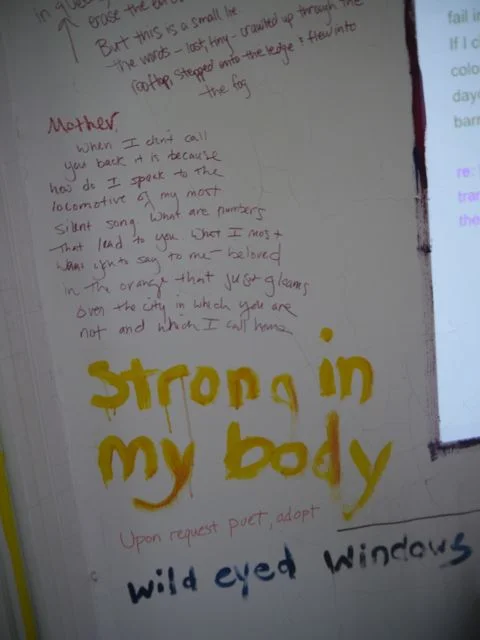 erase the
But this is a small lie
the words - lost, tiny - crawled up through the
rooftop, stepped onto the ledge & flew into
the fog
Mother,
when I don't call
you back it is because
how do I speak to the
locomotive of my most
silent song what are numbers
that lead to you. What I most
want you to say to me - beloved
in the orange that just gleams
over the city in which you are
not and which I call home
Strong in
my body
Upon request poet, adopt
wild eyed windows
fail in
If I c
colo
dayd
barr
re:
tran
the